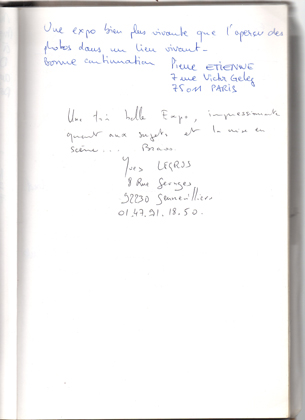 Une expo bien plus vivante que l'aperçu des
photos dans un lieu vivant.
Bonne continuation Pierre ETIENNE
7 rue Victor Gelez
75011 PARIS
Une très belle Expo, impressionnante
quant aux sujets et la mise en
scène... Bravo.
Yves LEGROS
8 Rue Georges
92230 Gennevilliers
01.47.91.18.50.